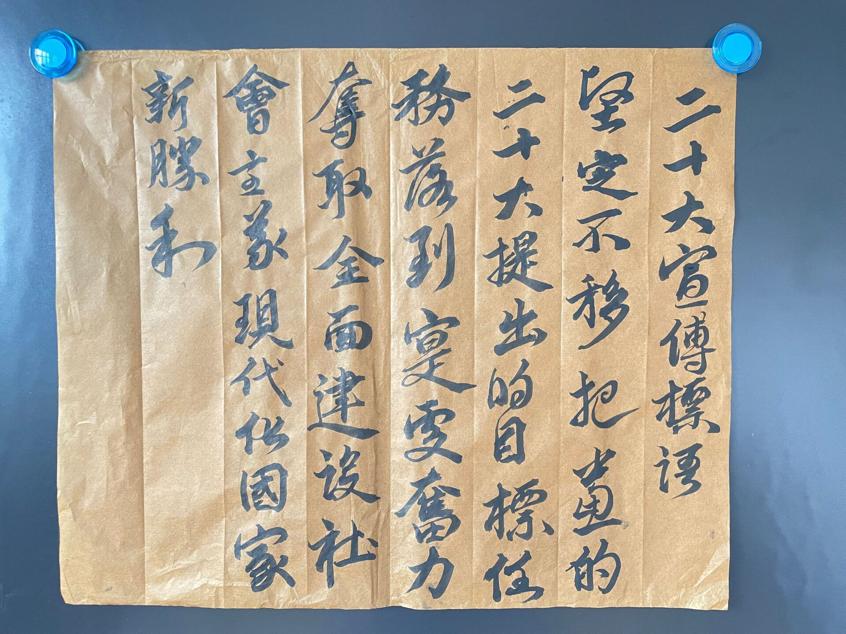 二十大宣傳標語
堅定不移把黨的
二十大提出的目標任
務落到寔處奮力
奪取全面建設社
會主義現代化國家
新勝利